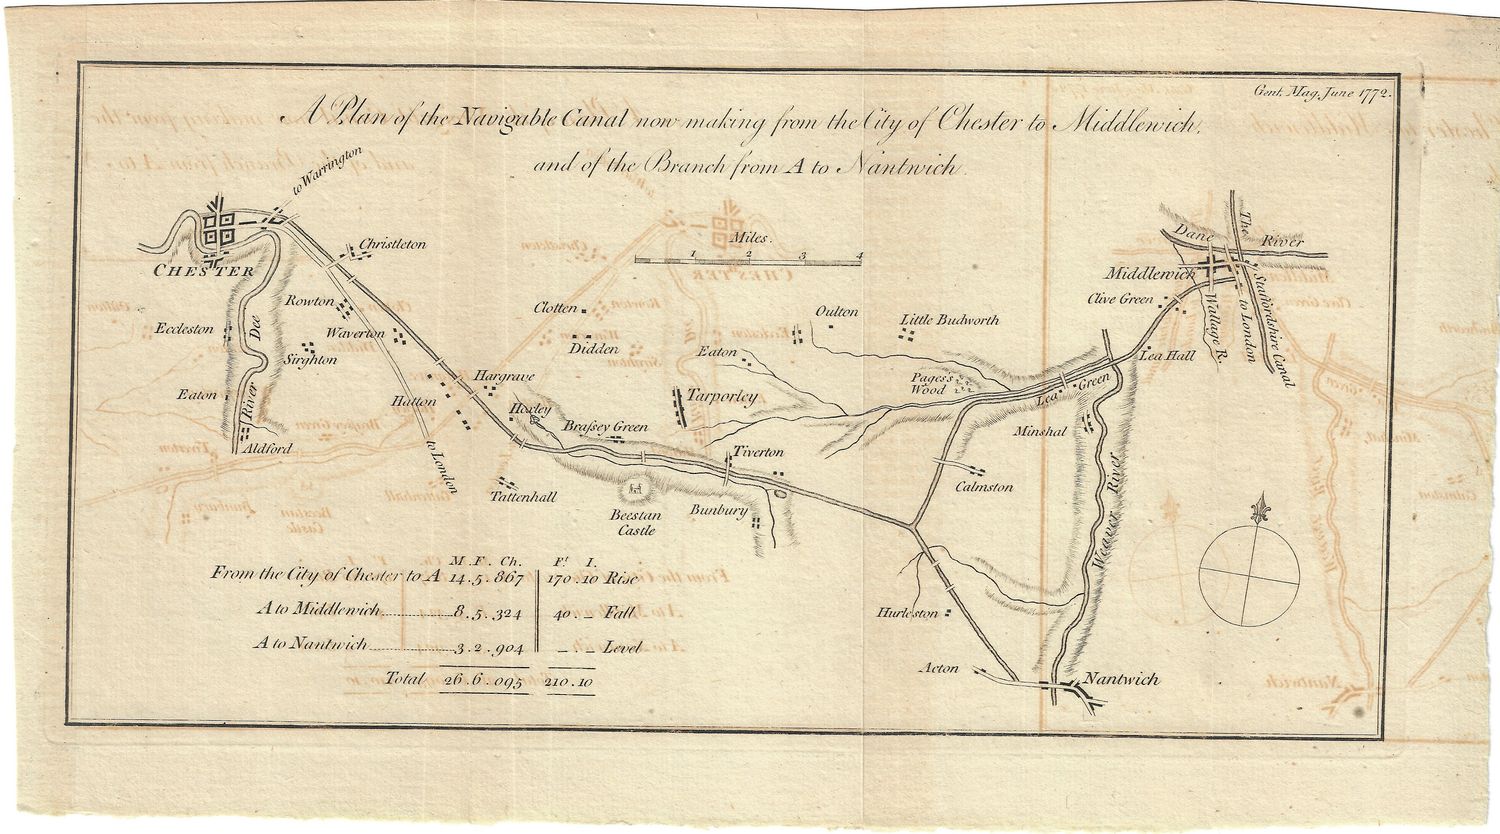 Gent. Mag. June 1772.
A Plan of the Navigable Canal now making from the City of Chester to Middlewich,
and of the Branch from A to Nantwich.
to Warrington
CHESTER
Christleton
Miles.
1 2 3 4
Dane River
The Staffordshire Canal
Middlewich
Clive Green
Wallage R.
to London
Rowton
Waverton
Eccleston
River Dee
Sirghton
Clotten
Didden
Oulton
Little Budworth
Eaton
Lea Hall
Eaton
Hargrave
Hatton
Huxley
Tarporley
Pages's
Wood
Lea Green
Aldford
Braſsey Green
Minshal
to London
Tiverton
Tattenhall
Calmston
Weaver River
Beestan
Castle
Bunbury
A
M. F. Ch. Ft. I.
From the City of Chester to A 14.5.867 170.10 Rise
A to Middlewich 8.5.324 40._ Fall
A to Nantwich 3.2.904 _._ Level
Total 26.6.095 210.10
Hurleston
Acton
Nantwich